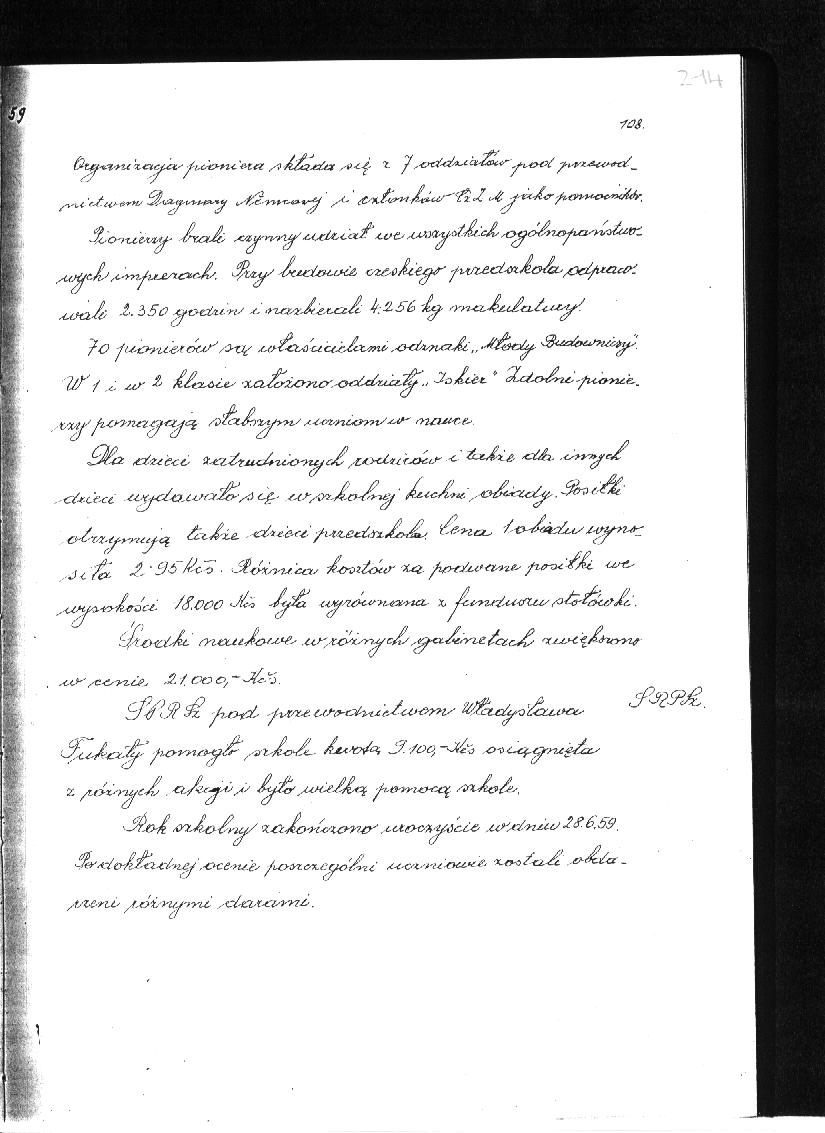 2-14
59
108.
Organizacja pioniera składa się z 7 oddziałów pod przewod-
nictwem Dagmary Němcovej i członków ČZM jako pomocników.
Pionierzy brali czynny udział we wszystkich ogólnopaństwo-
wych imprezach. Przy budowie czeskiego przedszkola odpraw-
wali 2.350 godzin i nazbierali 4.256 kg makulatury.
70 pionierów są właścicielami odznaki „Młody Budowniczy".
W 1 i w 2 klasie założono oddziały „Iskier" Zdolni pionie-
rzy pomagają słabszym uczniom w nauce.
Dla dzieci zatrudnionych rodziców i także dla innych
dzieci wydawało się w szkolnej kuchni obiady. Posiłki
otrzymują także dzieci przedszkola. Cena 1 obiadu wyno-
siła 2.95 Kčs. Różnica kosztów za podwane posiłki we
wysokości 18.000 Kčs była wyrównana z funduszu stołówki.
Środki naukowe w różnych gabinetach zwiększono
w cenie 21.000,- Kčs.
SRPSz pod przewodnictwem Władysława
SRPSz.
Fukały pomogło szkole kwotą 9.100,- Kčs osiągnięta
z różnych akcji i było wielką pomocą szkole.
Rok szkolny zakończono uroczyście w dniu 28.6.59.
Po dokładnej ocenie poszczególni uczniowie zostali obda-
rzeni różnymi darami.